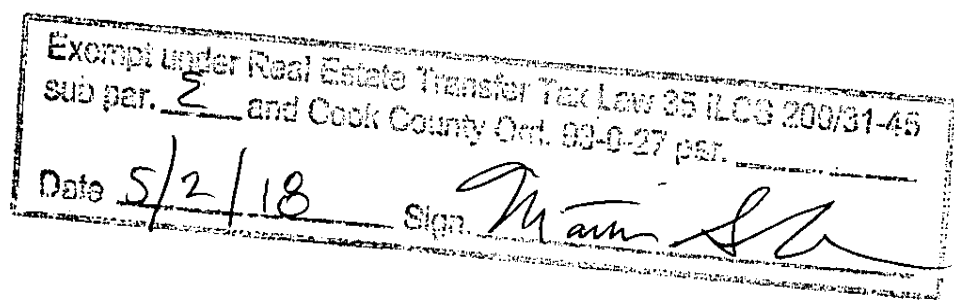 Exempt under Real Estate Transfer Tax Law 35 ILCS 200/31-45
sub par. E and Cook County Ord. 93-0-27 par.
Date 5/2/18 Sign. Martin